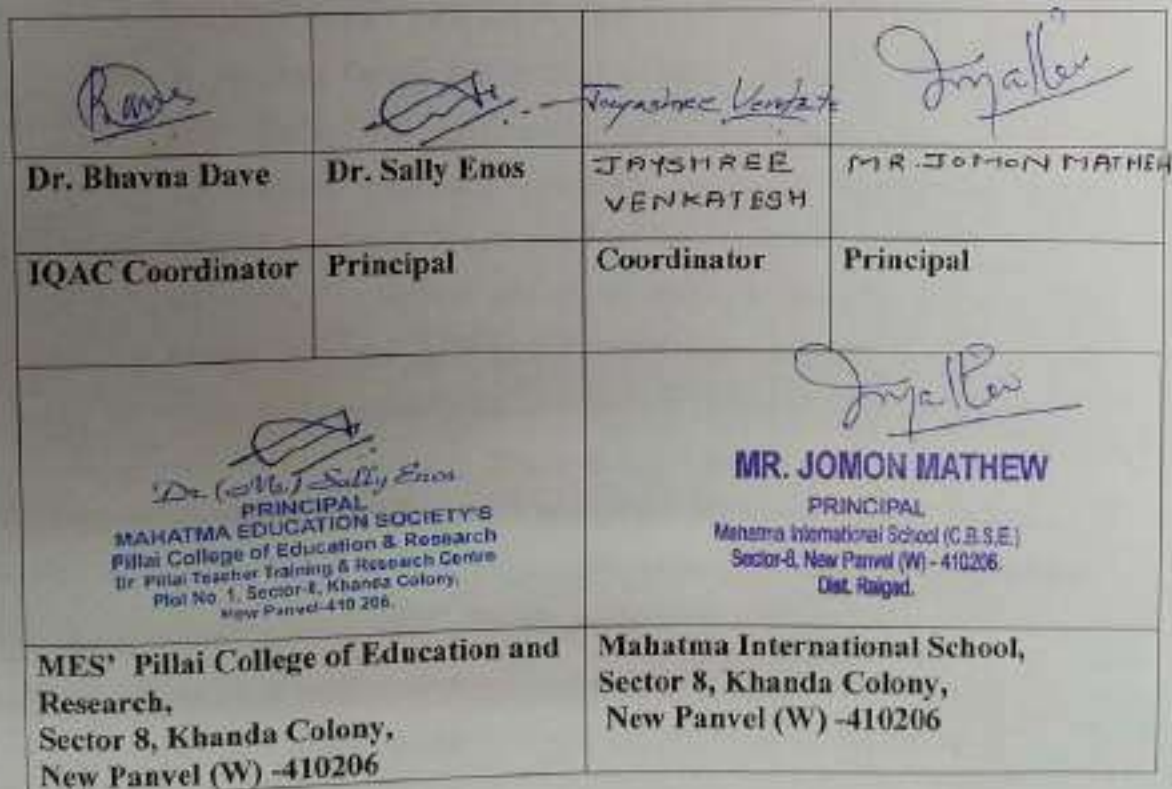 Jayashree
Dr. Bhavna Dave
Dr. Sally Enos
JAYSHREE
VENKATESH
MR JOMON MATHEW
IQAC Coordinator
Principal
Coordinator
Principal
Dr. (Ms.) Sally Enos
PRINCIPAL
MAHATMA EDUCATION SOCIETY'S
Pillai College of Education & Research
Dr. Pillai Teacher Training & Research Centre
Plot No. 1, Sector-8, Khanda Colony,
New Panvel-410 206.
MR. JOMON MATHEW
PRINCIPAL
Mahatma International School (C.B.S.E.)
Sector-8, New Panvel (W) - 410206.
Dist. Raigad.
MES' Pillai College of Education and
Research,
Sector 8, Khanda Colony,
New Panvel (W) -410206
Mahatma International School,
Sector 8, Khanda Colony,
New Panvel (W) -410206